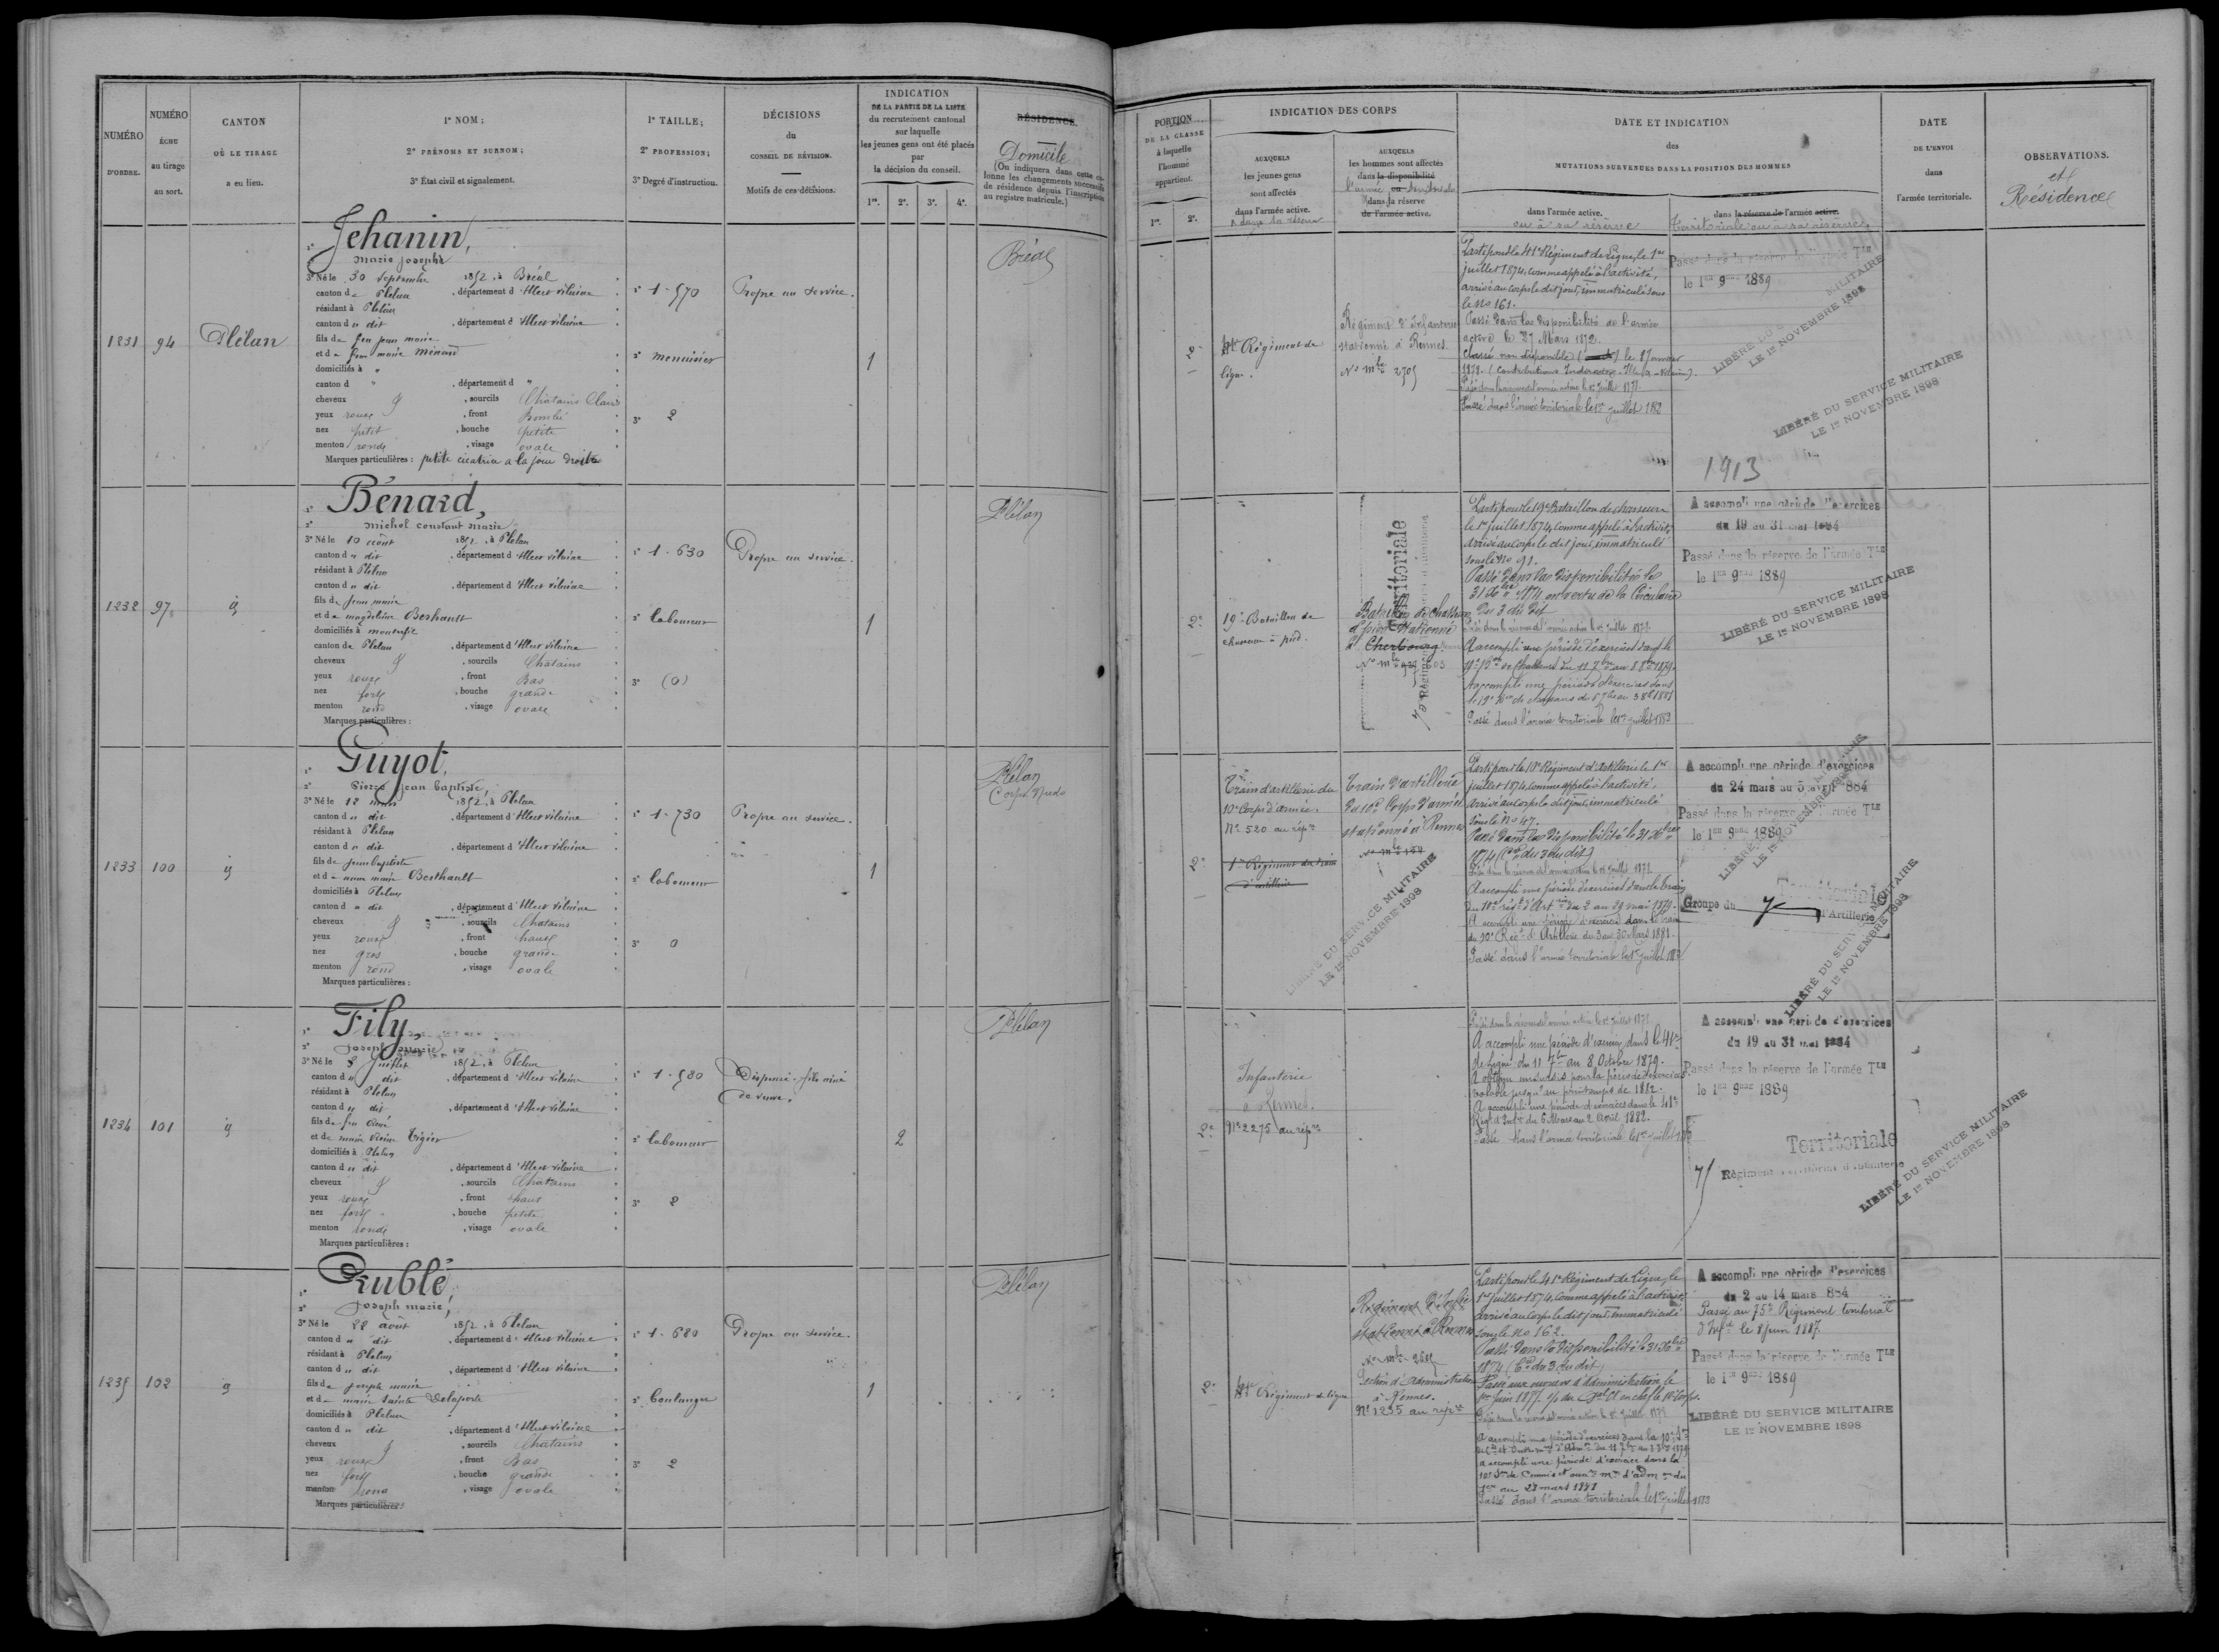 NUMÉRO
D'ORDRE.
NUMÉRO
ÉCHU
au tirage
au sort.
CANTON
OÙ LE TIRAGE
a eu lieu.
1° NOM ;
2° PRÉNOMS ET SURNOM ;
3° État civil et signalement.
1° TAILLE ;
2° PROFESSION ;
3° Degré d'instruction.
DÉCISIONS
du
CONSEIL DE RÉVISION.
Motifs de ces décisions.
INDICATION
DE LA PARTIE DE LA LISTE
du recrutement cantonal
sur laquelle
les jeunes gens ont été placés
par
la décision du conseil.
1re. 2e. 3e. 4e.
RÉSIDENCE.
Domicile
(On indiquera dans cette co-
lonne les changements successifs
de résidence depuis l'inscription
au registre matricule.)
PORTION
DE LA CLASSE
à laquelle
l'homme
appartient.
1re. 2e.
INDICATION DES CORPS
AUXQUELS
les jeunes gens
sont affectés
dans l'armée active.
AUXQUELS
les hommes sont affectés
dans la disponibilité
dans la réserve
de l'armée active.
DATE ET INDICATION
des
MUTATIONS SURVENUES DANS LA POSITION DES HOMMES
dans l'armée active.
ou à sa réserve
dans la réserve de l'armée active.
Territoriale ou à sa réserve
DATE
DE L'ENVOI
dans
l'armée territoriale.
OBSERVATIONS.
et
Résidence
1231 94 Plélan
1° Jehanin,
2° Marie Joseph
3° Né le 30 Septembre 1852, à Bréal
canton de Plélan, département d'Illeet vilaine
résidant à Plélan
canton du dit, département d'Illeet vilaine
fils de feu jean marie
et de feue marie Menard
domiciliés à "
canton d ", département d "
cheveux, sourcils Châtains Clairs
yeux roux, front Bombé
nez petit, bouche petite
menton ronde, visage ovale
Marques particulières : petite cicatrice a la joue droite
1° 1.570
2° menuisier
3° 2
Propre au service.
1
Bréal
2e
41e Régiment de
ligne.
Régiment d'Infanterie
stationné à Rennes
No mle 2705
Parti pour le 41e Régiment de Ligne, le 1er
juillet 1874, comme appelé à l'activité,
arrivé au corps le dit jour, immatriculé sous
le No 161.
Passé dans la réserve de l'armée active le 1er juillet 1877.
Passé dans l'armée territoriale le 1er juillet 1882
Passé dans la réserve de l'armée Tle
le 1er 9bre 1889
LIBÉRÉ DU SERVICE MILITAIRE
LE 1er NOVEMBRE 1898
LIBÉRÉ DU SERVICE MILITAIRE
LE 1er NOVEMBRE 1898
1913
1232 97 id
1° Bénard,
2° Michel constant marie
3° Né le 10 août 1852, à Plélan
canton du dit, département d'Illeet vilaine
résidant à Plélan
canton du dit, département d'Illeet vilaine
fils de jean marie
et de magdeleine Berthault
domiciliés à monterfil
canton de Plélan, département d'Illeet vilaine
cheveux, sourcils Châtains
yeux roux, front Bas
nez fort, bouche grande
menton rond, visage ovale
Marques particulières :
1° 1.630
2° laboureur
3° (0)
Propre au service.
1
Plélan
2e
19e Bataillon de
chasseurs à pied.
Bataillon de chasseurs
à pied stationné
à Cherbourg
Territoriale
Parti pour le 19e Bataillon de chasseurs
le 1er juillet 1874, comme appelé à l'activité,
arrivé au corps le dit jour, immatriculé
sous le No 91.
Passé dans la disponibilité le
31 Xbre 1874 en vertu de la Circulaire
du 3 du dit
Passé dans la réserve de l'armée active le 1er juillet 1877.
A accompli une période d'exercices dans le
Passé dans l'armée territoriale le 1er juillet 1883
A accompli une période d'exercices
du 19 au 31 mai 1884
Passé dans la réserve de l'armée Tle
le 1er 9bre 1889
LIBÉRÉ DU SERVICE MILITAIRE
LE 1er NOVEMBRE 1898
1233 100 id
1° Guyot,
2° Pierre jean baptiste,
3° Né le 12 mars 1852, à Plélan
canton du dit, département d'Illeet vilaine
résidant à Plélan
canton du dit, département d'Illeet vilaine
fils de jean baptiste
et de anne marie Berthault
domiciliés à Plélan
canton du dit, département d'Illeet vilaine
cheveux, sourcils Chatains
yeux roux, front haut
nez gros, bouche grande
menton rond, visage ovale
Marques particulières :
1° 1.730
2° laboureur
3° 0
Propre au service.
1
Plélan
Corps Nuds
2e
Train d'artillerie du
10e Corps d'armée.
No 520 au répre
1er Régiment du train
d'artillerie
Train d'artillerie
du 10e Corps d'armée
stationné à Rennes
LIBÉRÉ DU SERVICE MILITAIRE
LE 1er NOVEMBRE 1898
Parti pour le 10e Régiment d'Artillerie le 1er
juillet 1874, comme appelé à l'activité,
arrivé au corps le dit jour, immatriculé
sous le No 47.
Passé dans la disponibilité le 31 Xbre
1874 (Cre du 3 du dit)
Passé dans la réserve de l'armée active le 1er juillet 1877.
A accompli une période d'exercices dans le train
du 10e régt d'Artie du 2 au 29 mai 1879.
A accompli une période d'exercices dans le train
du 10e Régt d'Artillerie du 3 au 30 Mars 1881.
Passé dans l'armée territoriale le 1er juillet 1883
A accompli une période d'exercices
du 24 mars au 5 avril 1884
Passé dans la réserve de l'armée Tle
le 1er 9bre 1889
Territoriale
Groupe du 7e d'Artillerie
LIBÉRÉ DU SERVICE MILITAIRE
LE 1er NOVEMBRE 1898
1234 101 id
1° Fily,
2° Joseph marie
3° Né le 8 Juillet 1852, à Plélan
canton du dit, département d'Illeet vilaine
résidant à Plélan
canton du dit, département d'Illeet vilaine
fils de feu
et de marie
domiciliés à Plélan
canton du dit, département d'Illeet vilaine
cheveux, sourcils Chatains
yeux roux, front haut
nez fort, bouche petite
menton ronde, visage ovale
Marques particulières :
1° 1.580
2° laboureur
3° 2
Dispensé. fils ainé
de veuve.
2
Plélan
2e
Infanterie
à Rennes.
No 2275 au répre
Passé dans la réserve de l'armée active le 1er juillet 1877.
A accompli une période d'exercices dans le 41e
de Ligne du 11 7bre au 8 Octobre 1879.
A obtenu un sursis pour la période d'exercices
valable jusqu'au printemps de 1882.
A accompli une période d'exercices dans le 41e
Régt d'Infie du 6 Mars au 2 Avril 1882.
Passé dans l'armée territoriale le 1er juillet
A accompli une période d'exercices
du 19 au 31 mai 1884
Passé dans la réserve de l'armée Tle
le 1er 9bre 1889
Territoriale
75 Régiment territorial d'infanterie
LIBÉRÉ DU SERVICE MILITAIRE
LE 1er NOVEMBRE 1898
1235 102 id
1° Rublé,
2° Joseph marie,
3° Né le 28 août 1852, à Plélan
canton du dit, département d'Illeet vilaine
résidant à Plélan
canton du dit, département d'Illeet vilaine
fils de joseph marie
et de marie sainte Delaporte
domiciliés à Plélan
canton du dit, département d'Illeet vilaine
cheveux, sourcils Chatains
yeux roux, front Bas
nez fort, bouche grande
menton rond, visage ovale
Marques particulières :
1° 1.680
2° boulanger
3° 2
Propre au service.
1
Plélan
2e
41e Régiment de ligne
Régiment d'Infie
stationné à Rennes
Section d'administration
à Rennes.
No 1235 au répre
Parti pour le 41e Régiment de Ligne, le
1er juillet 1874, comme appelé à l'activité,
arrivé au corps le dit jour, immatriculé
sous le No 162.
Passé dans la disponibilité le 31 Xbre
1874 (Cre du 3 du dit)
Passé dans la réserve de l'armée active le 1er juillet 1877
a accompli une période d'exercice dans la
Passé dans l'armée territoriale le 1er juillet 1883
A accompli une période d'exercices
du 2 au 14 mars 884
Passé au 75e Régiment territorial
d'Infie le 8 juin 1887
Passé dans la réserve de l'armée Tle
le 1er 9bre 1889
LIBÉRÉ DU SERVICE MILITAIRE
LE 1er NOVEMBRE 1898